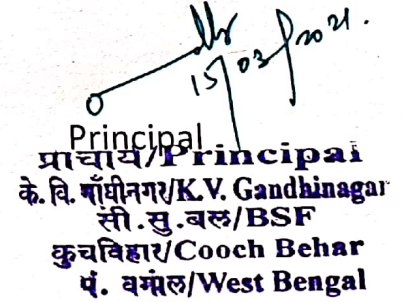 15/03/2021.
Principal
प्राचार्य/Principal
के. वि. गाँधीनगर/K.V. Gandhinagar
सी.सु.बल/BSF
कुचविहार/Cooch Behar
पं. बंगाल/West Bengal